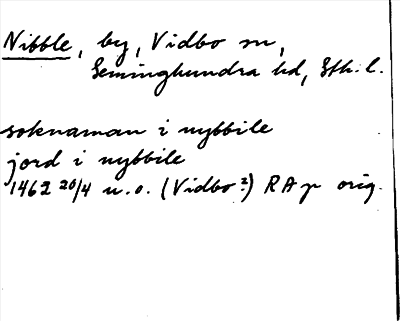 Nibble, by, Vidbo sn,
Seminghundra hd, Sth. l.
soknaman i nybbile
jord i nybbile
1462 20/4 u.o. (Vidbo?) RAp orig.